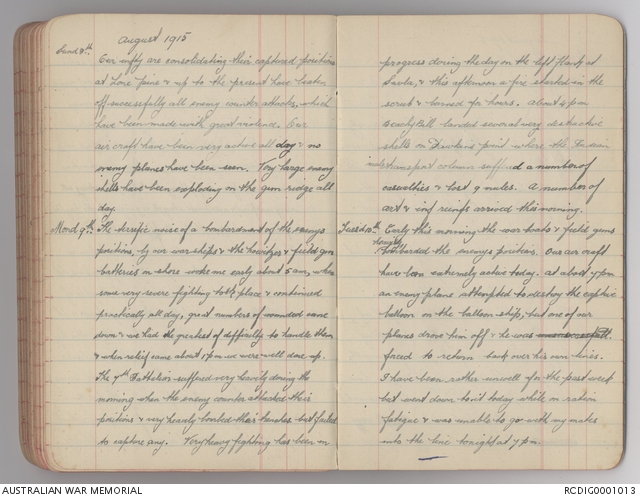 August 1915
Sund 8th. Our infty are consolidating their captured positions
at Lone Pine & up to the present have beaten
off successfully all enemy counter attacks, which
have been made with great violence. Our
air craft have been very active all day & no
enemy planes have been seen. Very large enemy
shells have been exploding on the gun ridge all
day.
Mond 9th. The terrific noise of a bombardment of the enemys
positions, by our war ships & the howitzer & field gun
batteries on shore woke me early about 5 am, when
some very severe fighting took place & continued
practically all day, great numbers of wounded came
down & we had the greatest of difficulty to handle them
& when relief came about 1 pm we were well done up.
The 7th Battalion suffered very heavily during the
morning when the enemy counter attacked their
positions & very heavily bombed their trenches but failed
to capture any. Very heavy fighting has been in
progress during the day on the left flank at
Suvla, & this afternoon a fire started in the
scrub & burned for hours. About 4 pm
Beachy Bill landed several very destructive
shells on Hawkins point where the Indian
mule transport column suffered a number of
casualties & lost 9 mules. A number of
art & inf reinfs arrived this morning.
Tuesd 10th. Early this morning the war boats & field guns
heavily
bombarded the enemys positions. Our air craft
have been extremely active today. At about 7 pm
an enemy plane attempted to destroy the captive
balloon on the balloon ship, but one of our
planes drove him off & he was
forced to return back over his own lines.
I have been rather unwell for the past week
but went down to it today while on ration
fatigue & was unable to go with my mates
into the line tonight at 7 pm.
AUSTRALIAN WAR MEMORIAL
RCDIG0001013